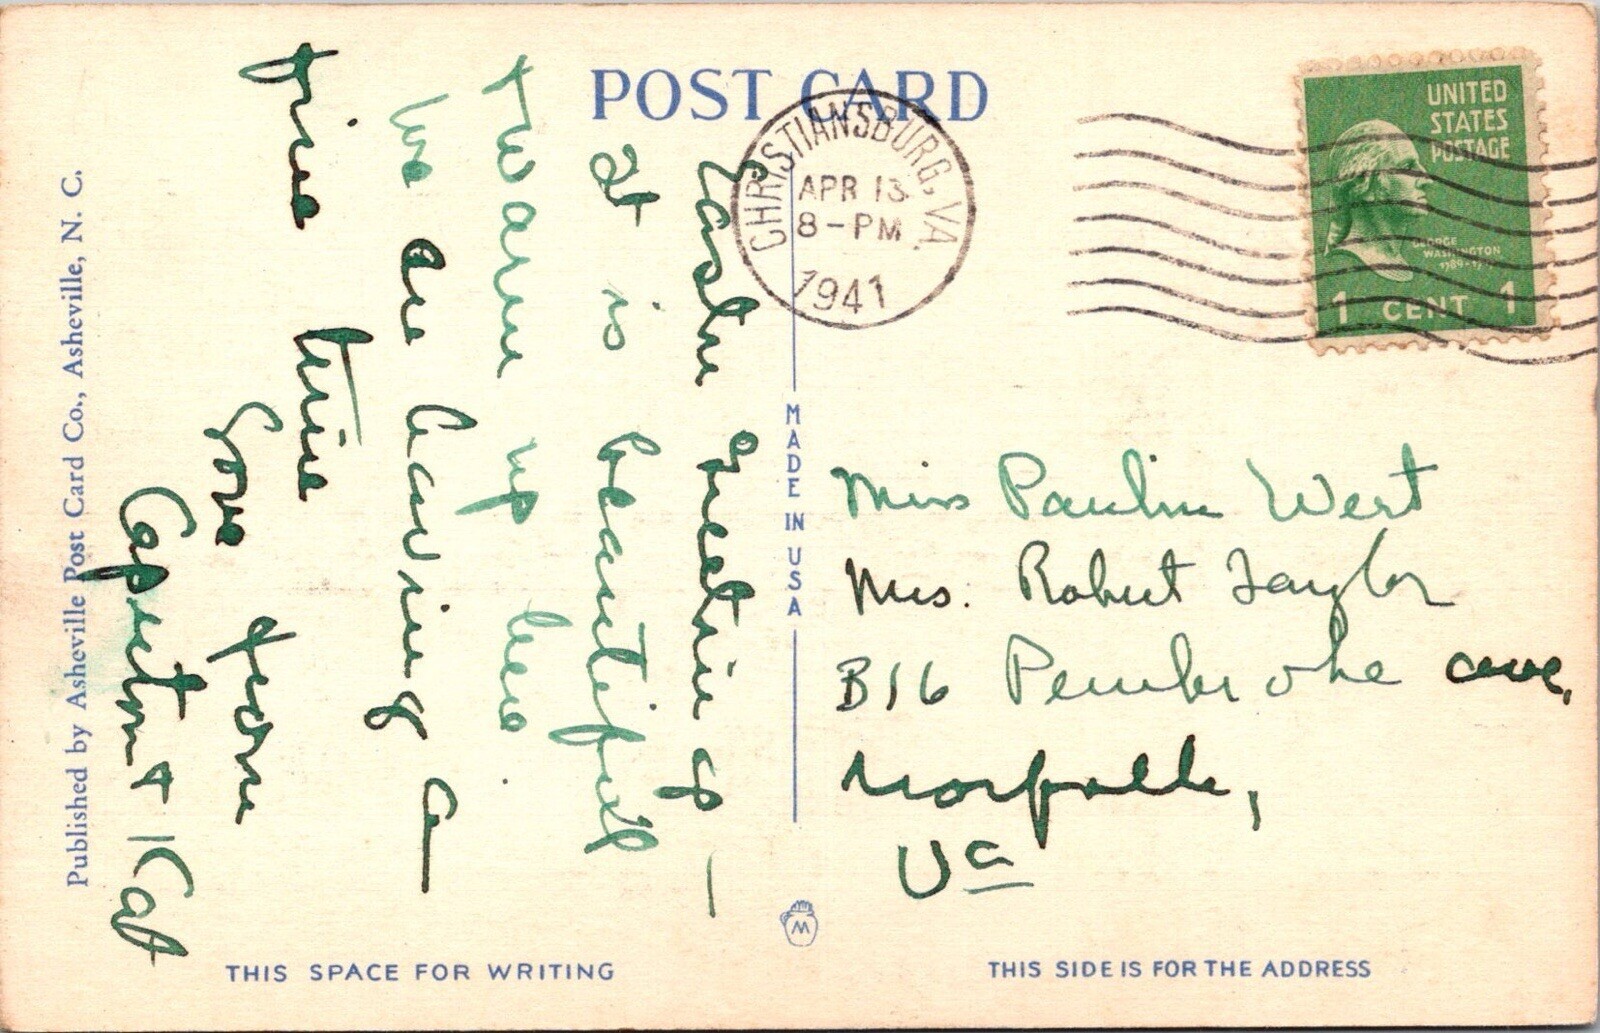 POST CARD
CHRISTIANSBURG, VA.
APR 13
8-PM
1941
UNITED
STATES
POSTAGE
GEORGE
WASHINGTON
1789-17
1 CENT 1
Easter Greetings –
It is beautiful
& warm up here.
We are having a
fine time
Love yours
& Kat
Miss Pauline West
Mrs. Robert Taylor
816 Pembroke ave,
Norfolk,
Va
MADE IN USA
Published by Asheville Post Card Co., Asheville, N. C.
W
THIS SPACE FOR WRITING
THIS SIDE IS FOR THE ADDRESS